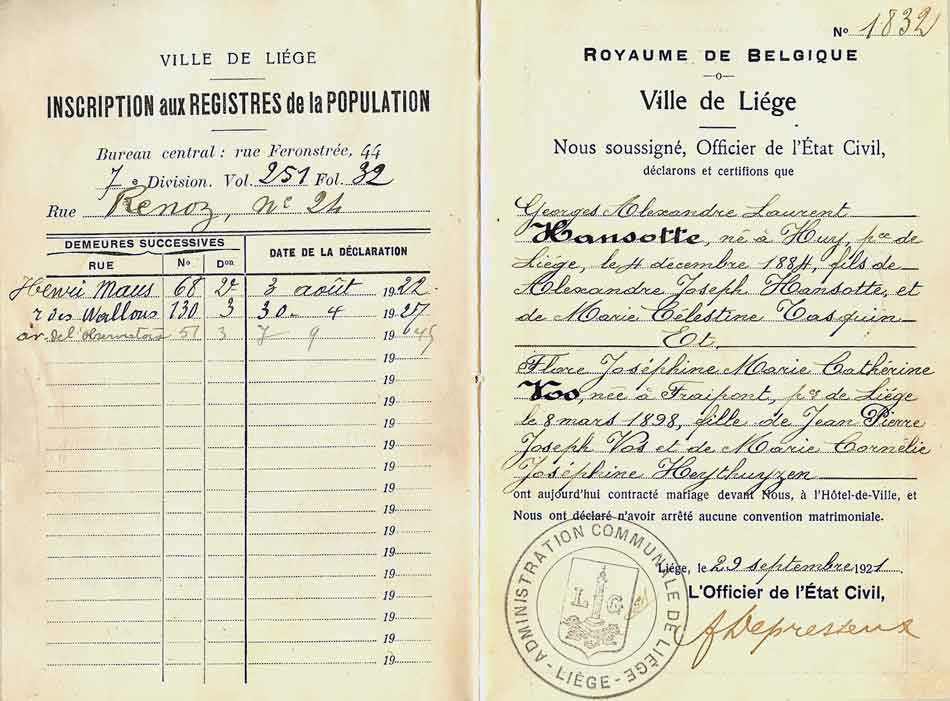 VILLE DE LIÉGE
INSCRIPTION aux REGISTRES de la POPULATION
Bureau central : rue Feronstrée, 44
7e Division. Vol. 251 Fol. 32
Rue Renoz, N° 24
DEMEURES SUCCESSIVES
DATE DE LA DÉCLARATION
RUE No Don
Henri Maus 68 2e 3 août 1922
r des Wallons 130 3 30 - 4 1927
av. de l'Observatoire 51 3 7 9 19
19
19
19
19
19
19
19
19
19
19
19
19
19
19
19
No 1832
ROYAUME DE BELGIQUE
Ville de Liége
Nous soussigné, Officier de l'État Civil,
déclarons et certifions que
Georges Alexandre Laurent
Hansotte, né à Huy, pce de
Liége, le 4 décembre 1884, fils de
Alexandre Joseph Hansotte, et
de Marie Célestine Tasquin
Et
Flore Joséphine Marie Cathérine
Vos, née à Fraipont, pce de Liége
le 8 mars 1898, fille de Jean Pierre
Joseph Vos et de Marie Cornélie
Joséphine Heythuyzen
ont aujourd'hui contracté mariage devant Nous, à l'Hôtel-de-Ville, et
Nous ont déclaré n'avoir arrêté aucune convention matrimoniale.
Liége, le 29 septembre 1921.
L'Officier de l'État Civil,
ADMINISTRATION COMMUNALE DE LIÈGE
- LIÈGE -
L G